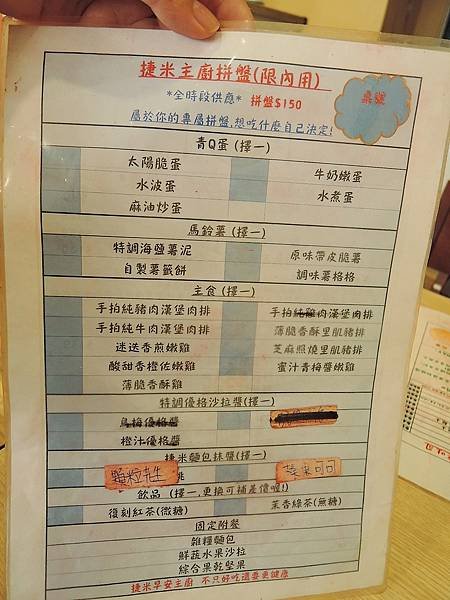 捷米主廚拼盤(限內用)
*全時段供應* 拼盤$150
桌號
屬於你的專屬拼盤,想吃什麼自己決定!
青Q蛋 (擇一)
太陽脆蛋 牛奶嫩蛋
水波蛋 水煮蛋
麻油炒蛋
馬鈴薯 (擇一)
特調海鹽薯泥 原味帶皮脆薯
自製薯籤餅 調味薯格格
主食 (擇一)
手拍純豬肉漢堡肉排 手拍純雞肉漢堡肉排
手拍純牛肉漢堡肉排 薄脆香酥里肌豬排
迷迭香煎嫩雞 芝麻照燒里肌豬排
酸甜香橙佐嫩雞 蜜汁青梅醬嫩雞
薄脆香酥雞
特調優格沙拉醬(擇一)
烏梅優格醬
橙汁優格醬
捷米麵包抹醬(擇一)
顆粒花生
飲品 (擇一,更換可補差價喔!)
復刻紅茶(微糖) 茉香綠茶(無糖)
固定附餐
雜糧麵包
鮮蔬水果沙拉
綜合果乾堅果
捷米早安主廚 不只好吃還要更健康